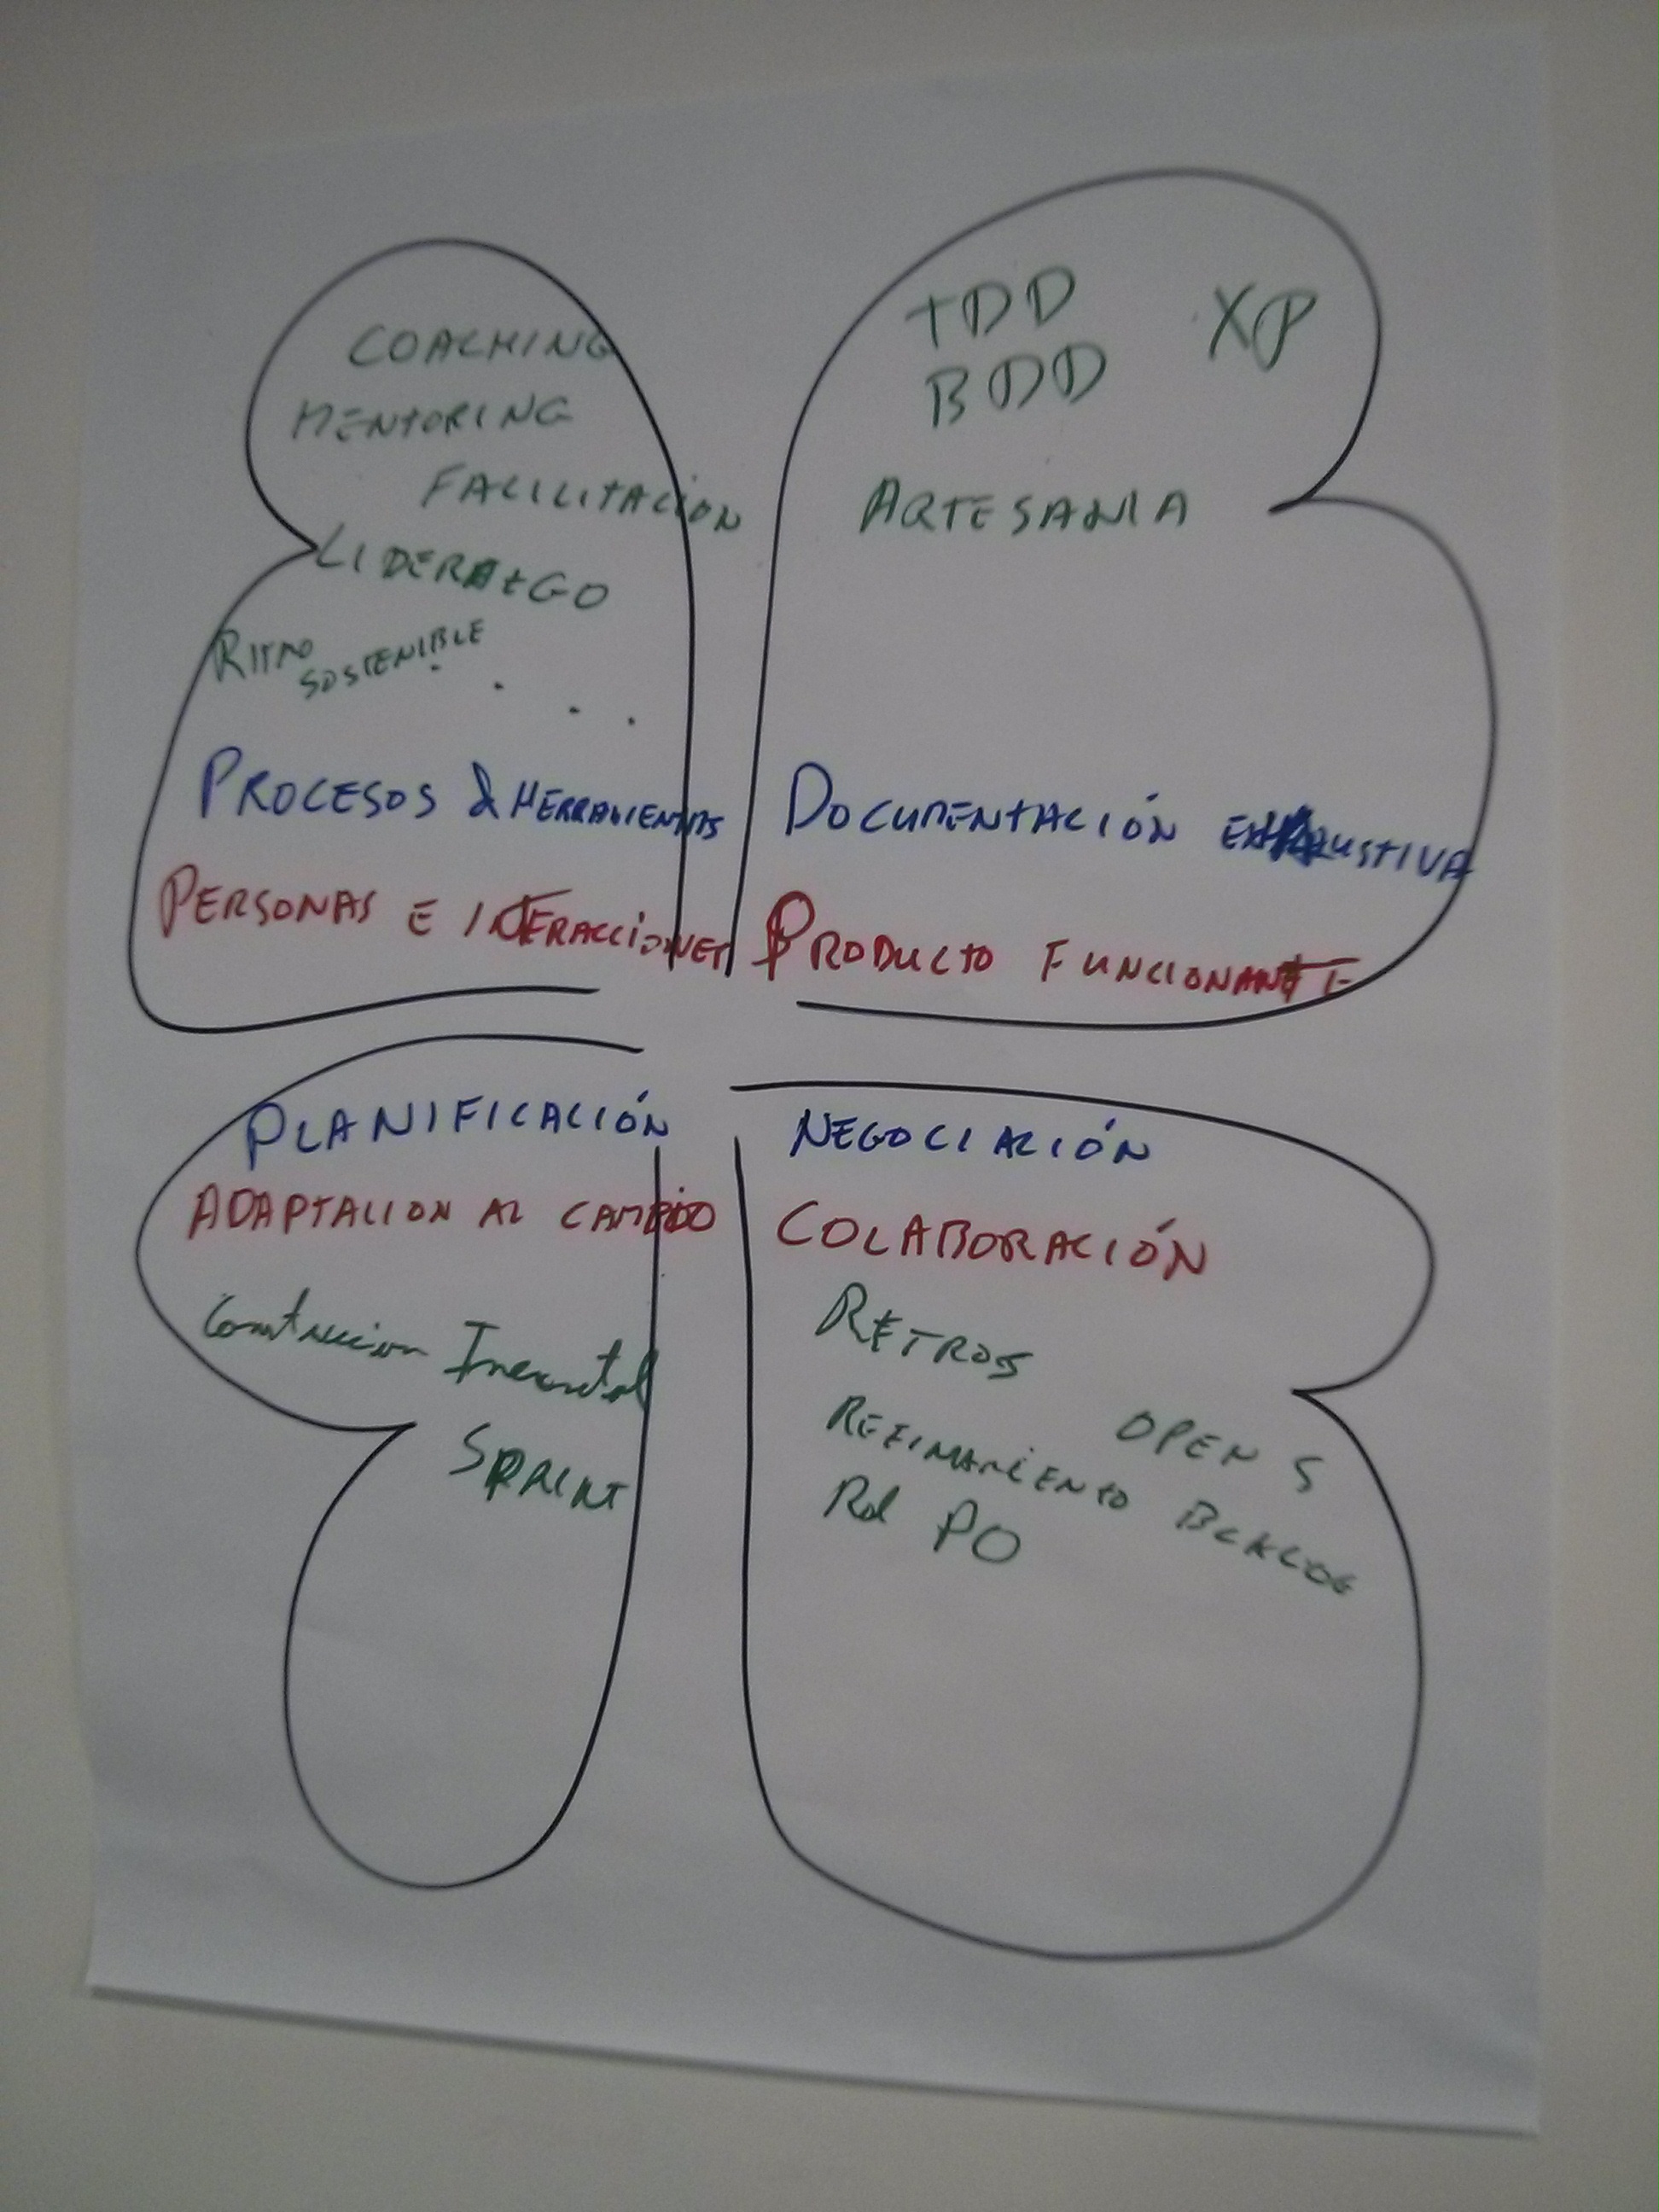 COACHING
MENTORING
FACILITACIÓN
LIDERAZGO
RITMO
SOSTENIBLE
PROCESOS & HERRAMIENTAS
PERSONAS E INTERACCIONES
TDD XP
BDD
ARTESANIA
DOCUMENTACIÓN EXHAUSTIVA
PRODUCTO FUNCIONANTE
PLANIFICACIÓN
ADAPTACION AL CAMBIO
Construccion Incremental
SPRINT
NEGOCIACIÓN
COLABORACIÓN
RETROS
OPEN S
REFINAMIENTO BCKLOG
Rol PO